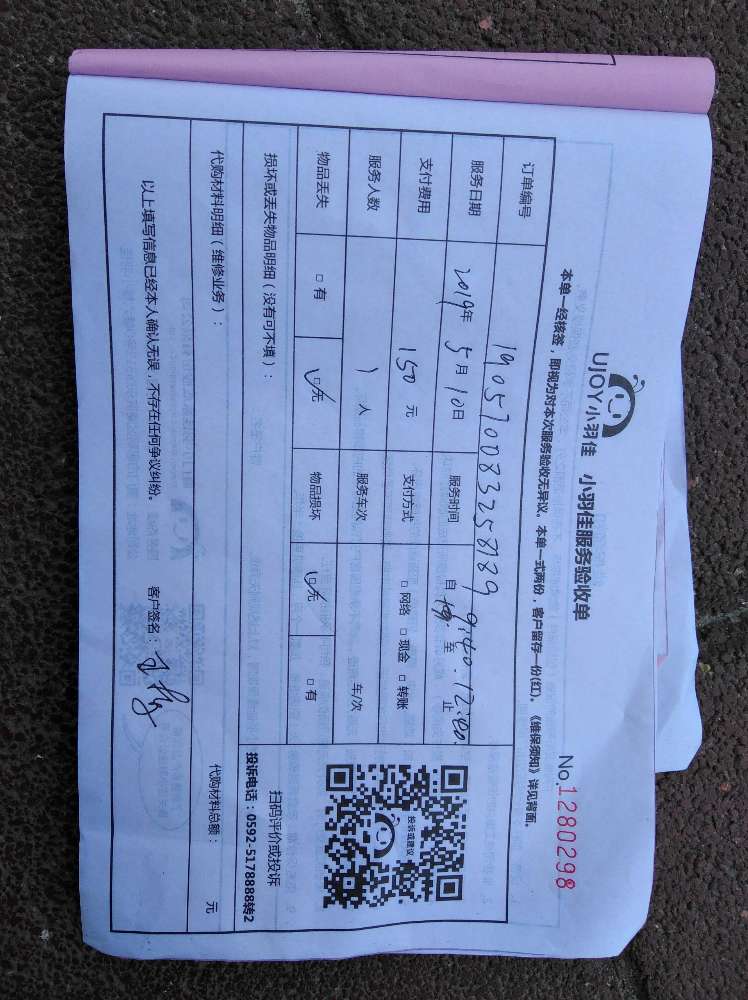 UJOY小羽佳 小羽佳服务验收单
No.1280298
本单一经核签，即视为对本次服务验收无异议。本单一式两份，客户留存一份(红)。《维保须知》详见背面。
订单编号 190510083258189
服务日期 2019年5月10日 服务时间 自 至 止 9:40. 12:00
支付费用 150元 支付方式 □网络 □现金 □转账
服务人数 1人 服务车次 车/次
物品丢失 □有 □无 物品损坏 □无 □有
投诉或建议
小羽佳
扫码评价或投诉
投诉电话：0592-5178888转2
损坏或丢失物品明细（没有可不填）：
代购材料明细（维修业务）：
代购材料总额： 元
以上填写信息已经本人确认无误，不存在任何争议纠纷。 客户签名：